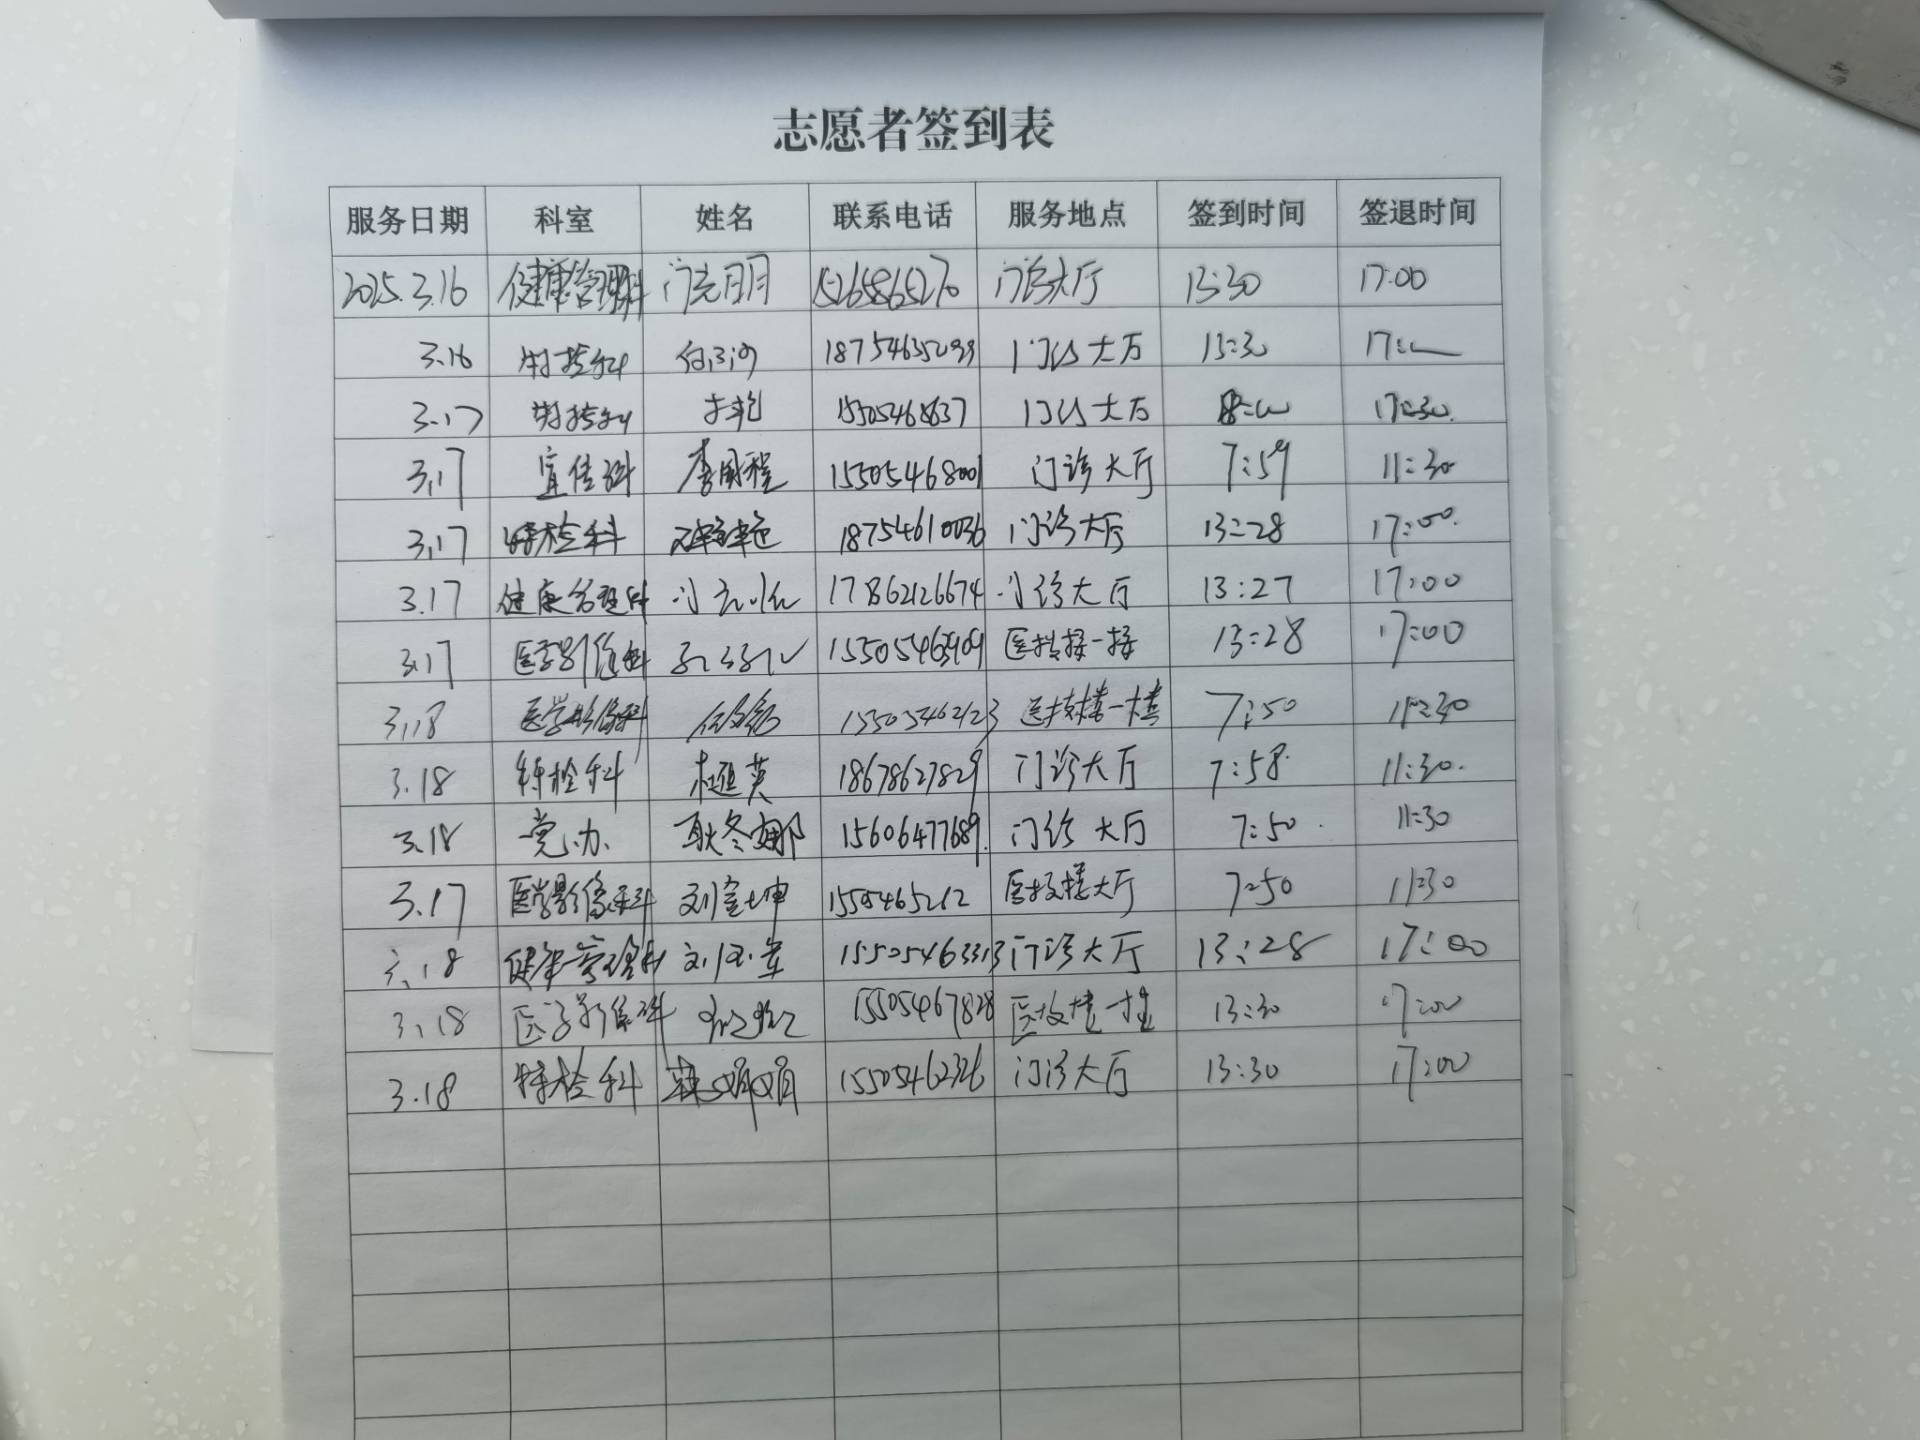 志愿者签到表
服务日期 科室 姓名 联系电话 服务地点 签到时间 签退时间
2025.3.16 健康管理科 门诊大厅 13:30 17:00
3.16 特检科 门诊大厅 13:30
3.17 特检科 15505468637 门诊大厅 8:00 17:30
3.17 宣传科 李国程 15505468001 门诊大厅 7:59 11:30
3.17 特检科 18754610036 门诊大厅 13:28 17:00
3.17 健康管理科 17862126674 门诊大厅 13:27 17:00
3.17 医学影像科 15505463909 13:28 17:00
3.18 医学影像科 15505462123 医技楼一楼 7:50 11:30
3.18 特检科 18678627829 门诊大厅 7:58 11:30
3.18 党办 耿冬娜 15606477689 门诊大厅 7:50 11:30
3.17 医学影像科 刘金坤 医技楼大厅 7:50 11:30
3.18 健康管理科 15505463313 门诊大厅 13:28 17:00
3.18 医学影像科 15505467828 医技楼一楼 13:30 17:00
3.18 特检科 15505462326 门诊大厅 13:30 17:00